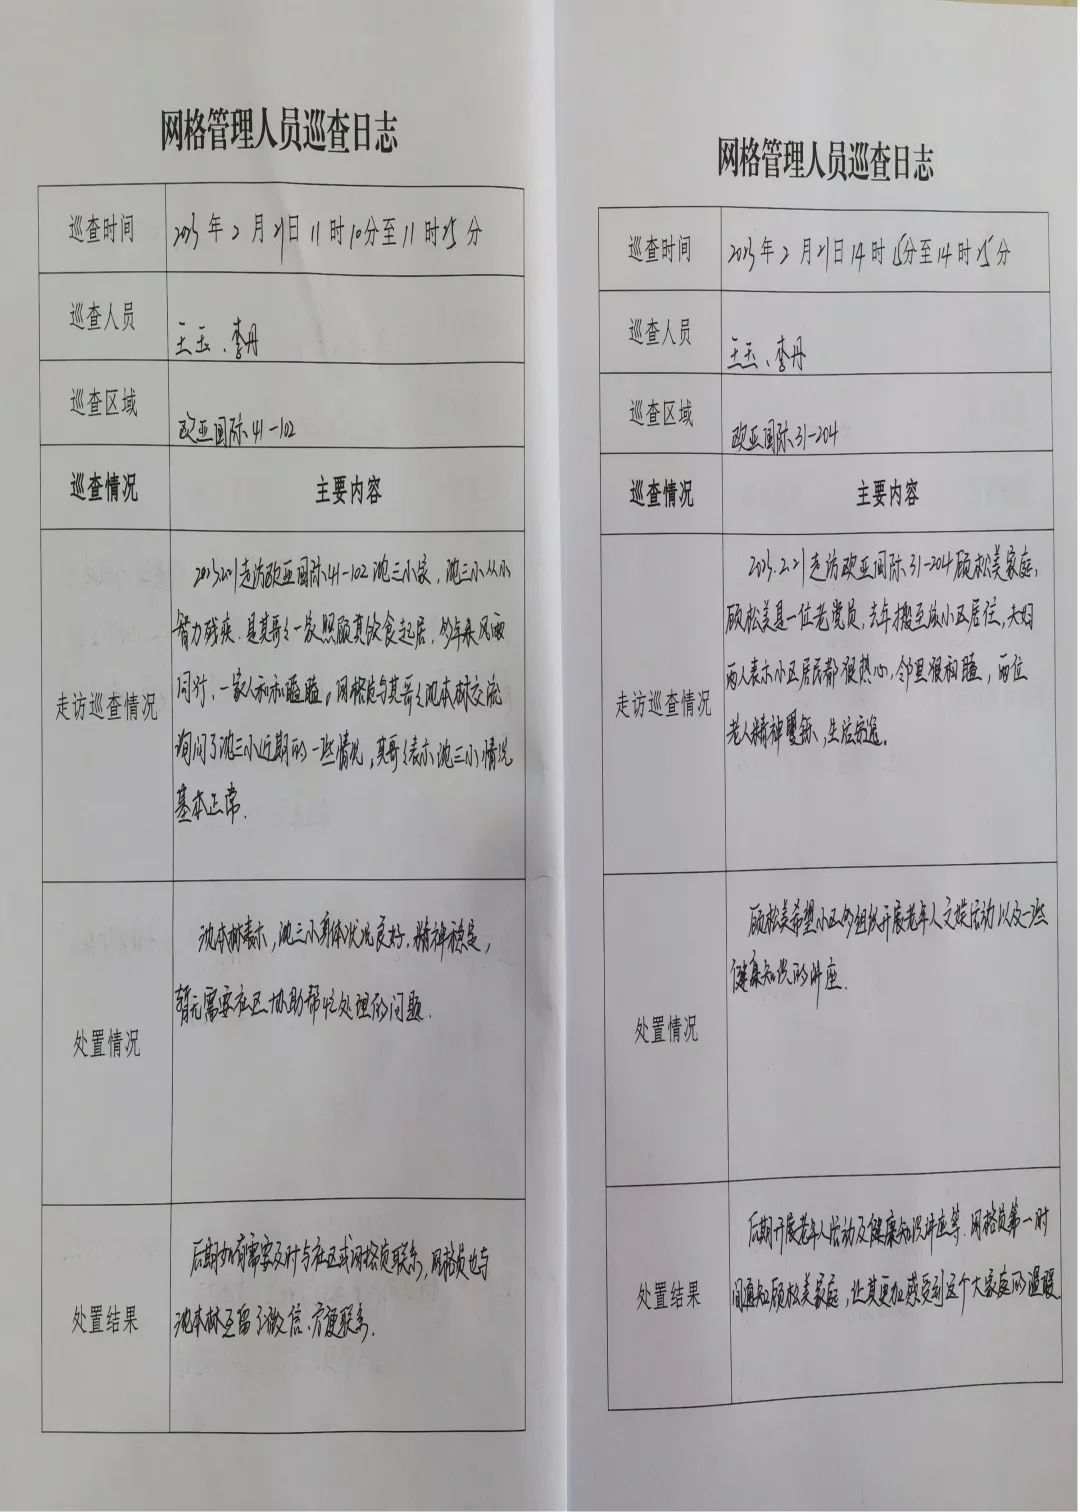 网格管理人员巡查日志
巡查时间 2023年2月21日11时10分至11时25分
巡查人员 王玉、李丹
巡查区域 欧亚国际41-102
巡查情况 主要内容
走访巡查情况
2023.2.21走访欧亚国际41-102沈三小家,沈三小从小
智力残疾.是其哥々一家照顾其饮食起居,多年来风雨
同行.一家人和和睦睦。网格员与其哥々沈本林交流
询问了沈三小近期的一些情况,其哥々表示沈三小情况
基本正常.
处置情况
沈本林表示,沈三小身体状况良好,精神稳定,
暂无需要社区协助帮忙处理的问题.
处置结果
后期如有需要及时与社区或网格员联系,网格员也与
沈本林互留了微信.方便联系.
网格管理人员巡查日志
巡查时间 2023年2月21日14时15分至14时25分
巡查人员 王玉、李丹
巡查区域 欧亚国际31-204
巡查情况 主要内容
走访巡查情况
2023.2.21走访欧亚国际31-204顾松美家庭,
顾松美是一位老党员,去年搬至故小区居住,夫妇
两人表示小区居民都很热心,邻里很和睦,两位
老人精神矍铄,生活安逸。
处置情况
顾松美希望小区多组织开展老年人文娱活动以及一些
健康知识的讲座.
处置结果
后期开展老年人活动及健康知识讲座等.网格员第一时
间通知顾松美家庭,让其更加感受到这个大家庭的温暖.